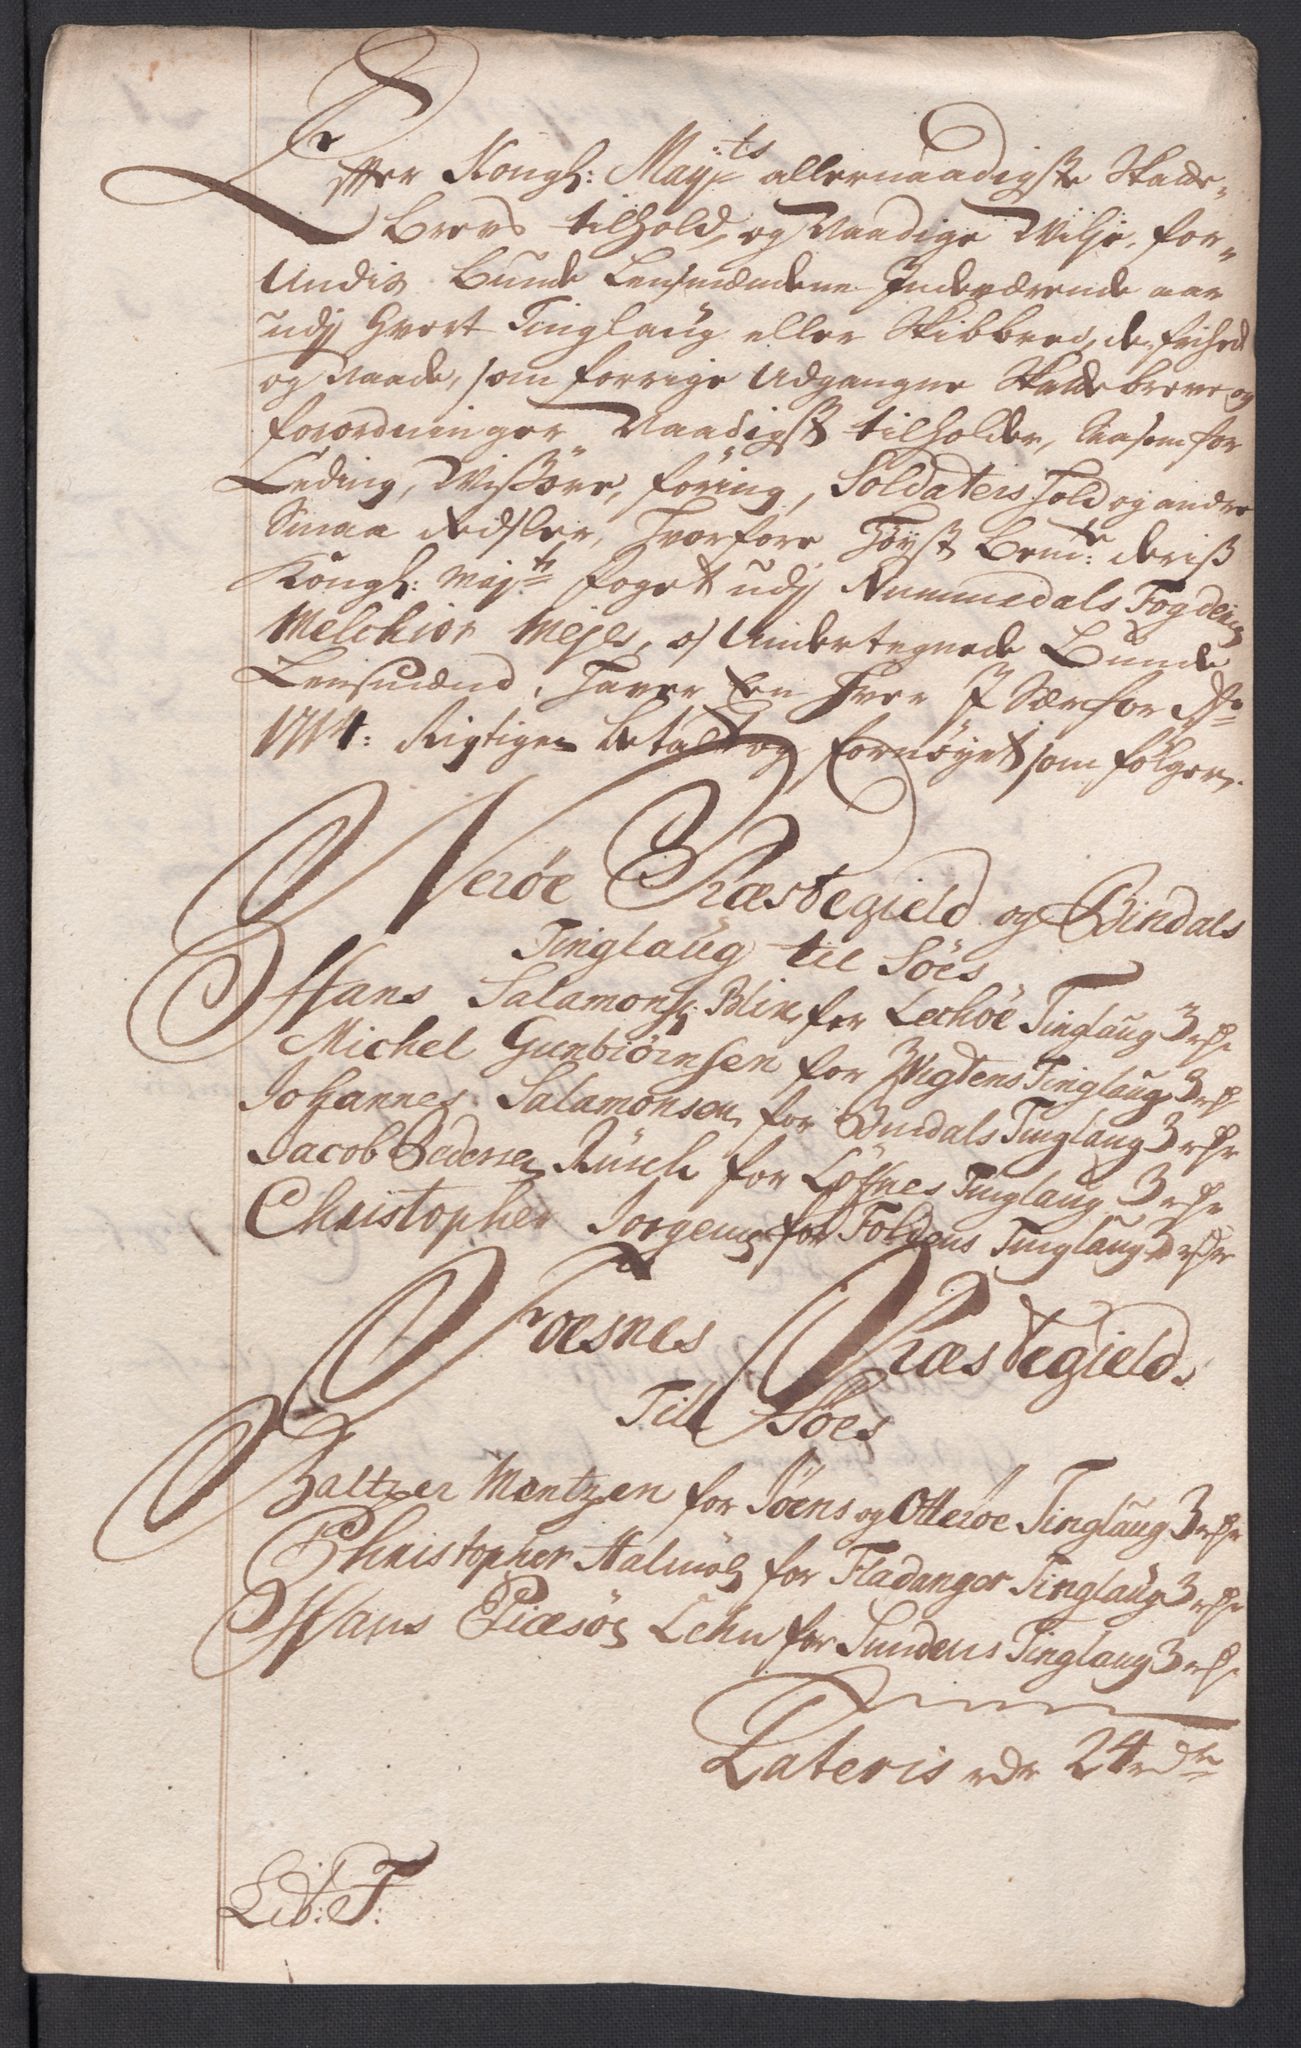 Effter Kongl: Mayts allernaadigste Skatte-
Brevs tilhold, og Naadige Villje, for-
Undis Bunde Lensmændene Indeværende aar
udj Hvert Tinglaug eller Skibbred, de frihed
og Naade, som forrige Udgangne Skatte breve og
forordninger Naadigst tilholder, Saasom for
Leding, Wissøre, føring, Soldaters hold og andre
Smaa Redsler, hvorfore høyst bemte: deris
Kongl: Mayts foget udj Nummedals Fogderie
Melchior Mejer, os Undertegnede Bunde
Lensmænd, haver En hver I Sær for Ao
1714: Rigtigen betalt og fornøyet som følger.
Nerøe Præstegield og Bindals
Tinglaug til Søes
Hans Salamons: Blix for Lechøe Tinglaug 3 rdr
Michel Gunbiørnsen for Wigtens Tinglaug 3 rdr
Johannes Salamonsen for Bindals Tinglaug 3 rdr
Jacob Pedersen Rusch for Løfnes Tinglaug 3 rdr
Christopher Jorgens for Foldens Tinglaug 3 rdr
Foesnes Præstegield
Til Søes
Baltzer Mentzen for Søens og Otterøe Tinglaug 3 rdr
Christopher Halmøe for Fladanger Tinglaug 3 rdr
Hans Lehn for Sundens Tinglaug 3 rdr
Lateris rdr 24 rdr
Lit: F: